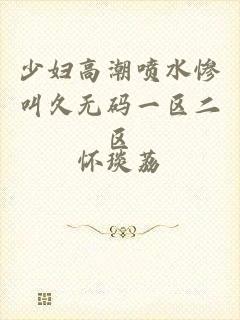 少妇高潮喷水惨
叫久无码一区二
区
怀琰荔